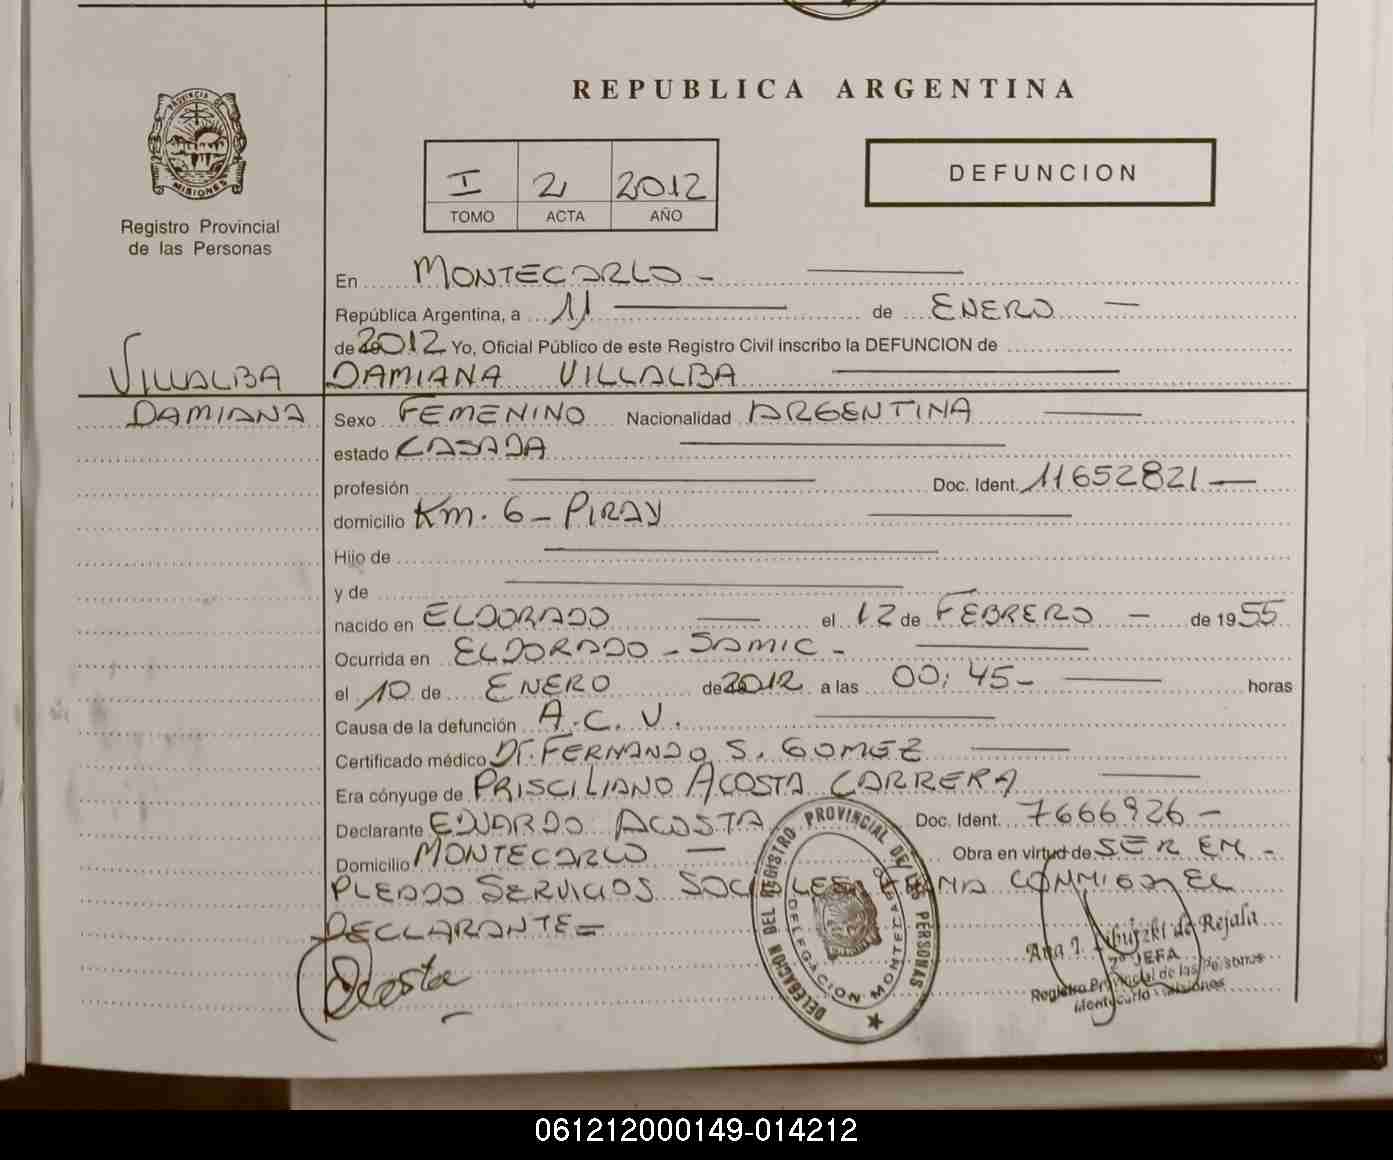 REPUBLICA ARGENTINA
PROVINCIA DE MISIONES
Registro Provincial
de las Personas
I 2 2012
TOMO ACTA AÑO
DEFUNCION
En MONTECARLO -
República Argentina, a 11 de ENERO
de 2012 Yo, Oficial Público de este Registro Civil inscribo la DEFUNCION de
VILLALBA DAMIANA VILLALBA
DAMIANA Sexo FEMENINO Nacionalidad ARGENTINA
estado CASADA
profesión Doc. Ident. 11652821
domicilio Km. 6 - PIRAY
Hijo de
y de
nacido en ELDORADO el 12 de FEBRERO - de 1955
Ocurrida en ELDORADO - SAMIC -
el 10 de ENERO de 2012 a las 00:45- horas
Causa de la defunción A.C.V.
Certificado médico Dr. FERNANDO S. GOMEZ
Era cónyuge de PRISCILIANO ACOSTA CARRERA
Declarante EDUARDO ACOSTA Doc. Ident. 7666926 -
Domicilio MONTECARLO - Obra en virtud de SER EM-
PLEADO SERVICIOS SOCIALES FIRMA CONMIGO EL
DECLARANTE=
Acosta
DELEGACION DEL REGISTRO PROVINCIAL DE LAS PERSONAS
DELEGACION MONTECARLO
Ana de Rejala
2º JEFA
Registro Provincial de las Personas
Montecarlo - Misiones
061212000149-014212